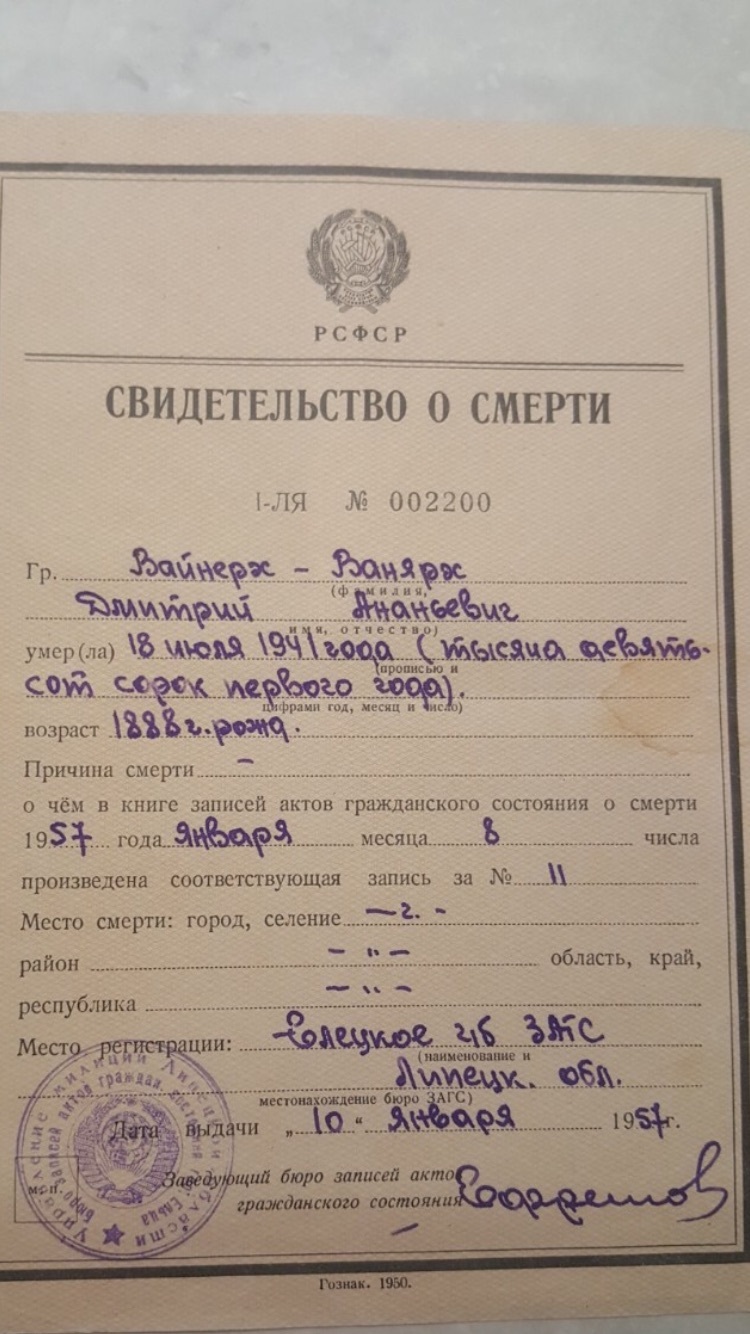 РСФСР
СВИДЕТЕЛЬСТВО О СМЕРТИ
I-ЛЯ № 002200
Гр. Вайнерж - Ванярж
(фамилия,
Дмитрий Ананьевич
имя, отчество)
умер(ла) 18 июля 1941 года (тысяча девять-
(прописью и
сот сорок первого года).
цифрами год, месяц и число)
возраст 1888 г. рожд.
Причина смерти -
о чём в книге записей актов гражданского состояния о смерти
1957 года января месяца 8 числа
произведена соответствующая запись за № 11
Место смерти: город, селение — г. -
район - " - область, край,
республика - " -
Место регистрации: Елецкое г/б ЗАГС
(наименование и
Липецк. обл.
местонахождение бюро ЗАГС)
Дата выдачи „10“ января 1957 г.
Заведующий бюро записей актов
гражданского состояния
м. п.
Управление милиции Липецкой области
Бюро записей актов граждан. состояния гор. Ельца
Гознак. 1950.